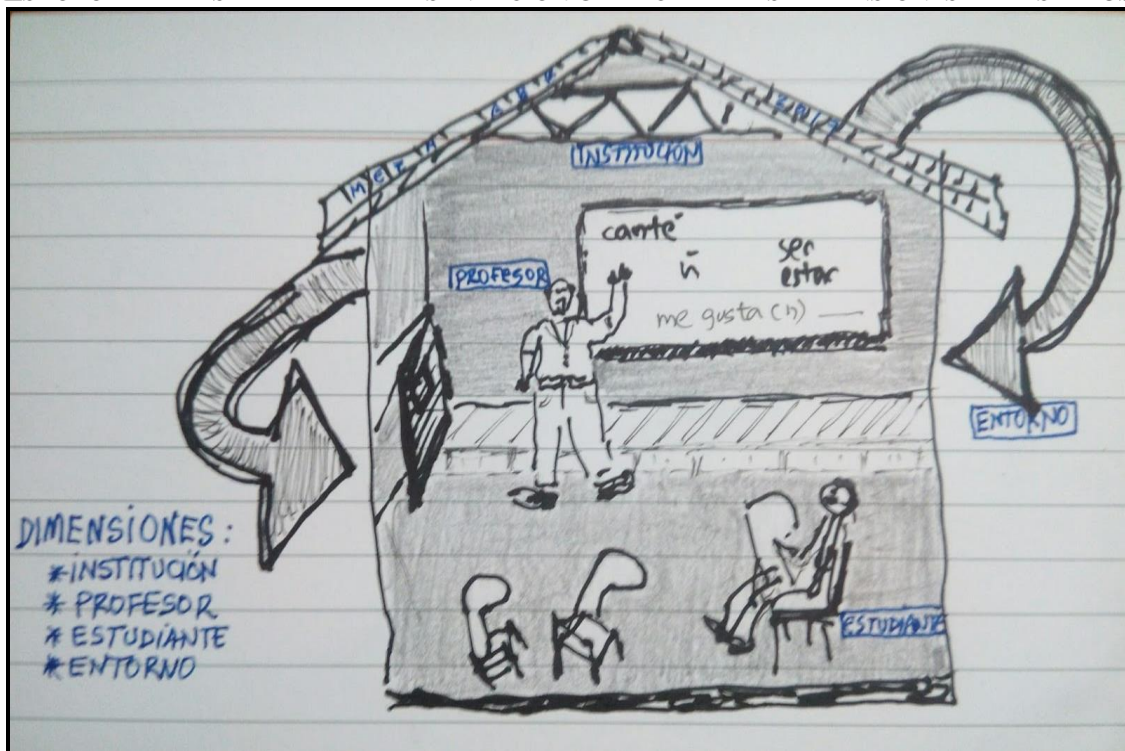 INSTITUCIÓN
PROFESOR
canté
ñ
ser
estar
me gusta(n) __
ENTORNO
ESTUDIANTE
DIMENSIONES:
* INSTITUCIÓN
* PROFESOR
* ESTUDIANTE
* ENTORNO